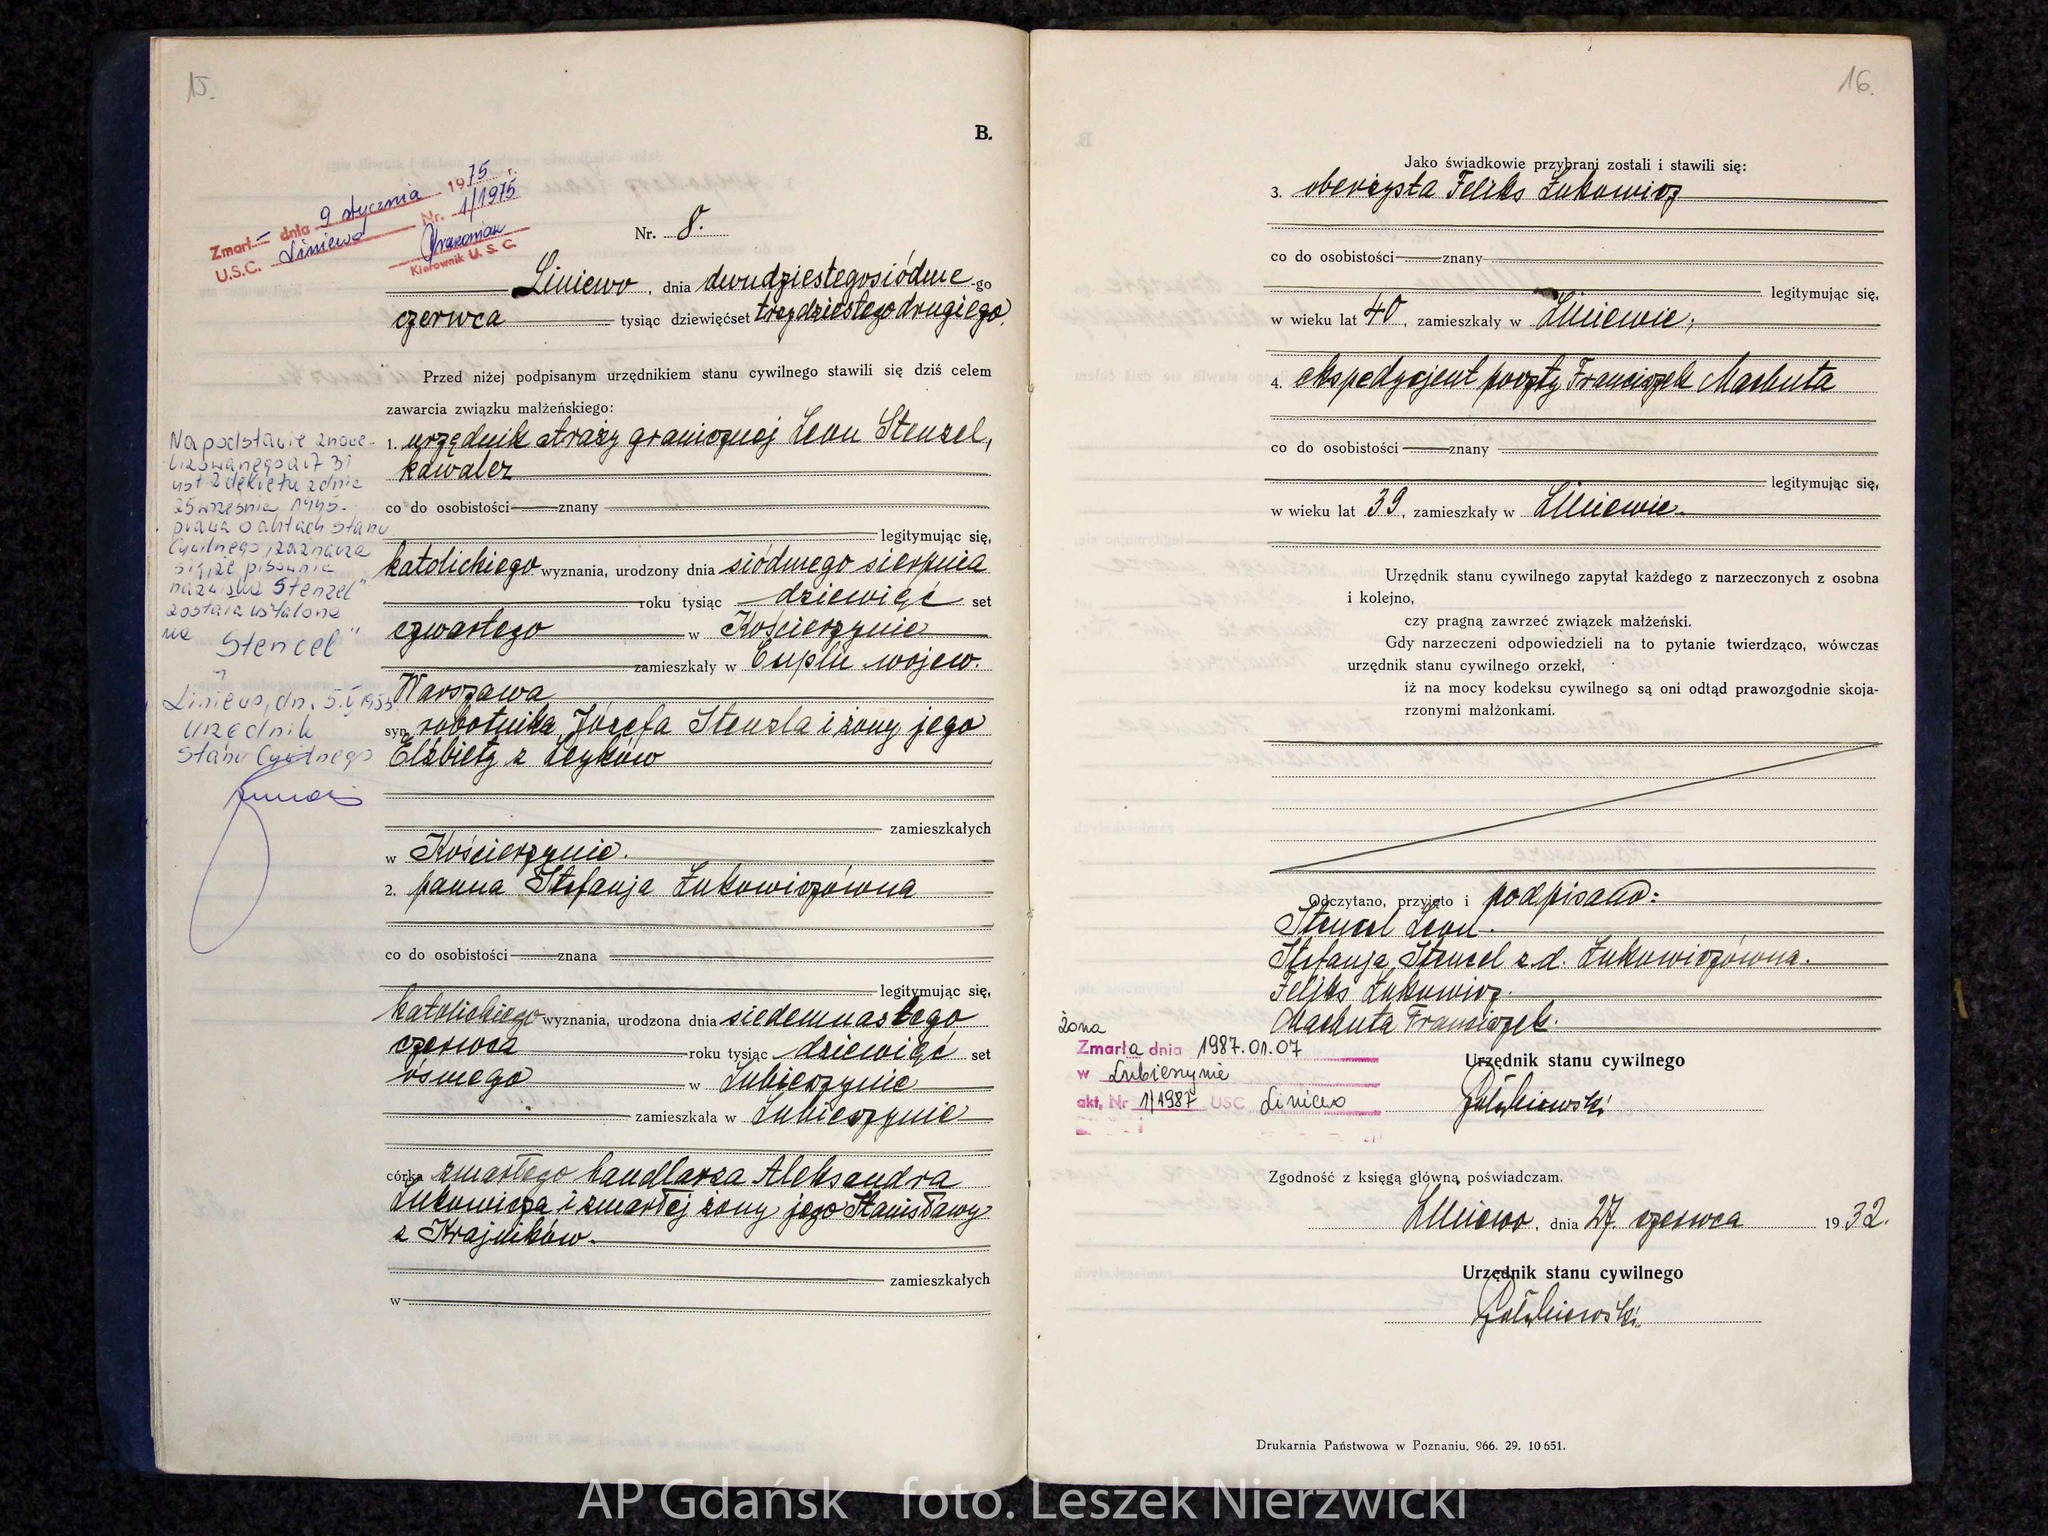 15.
B.
Zmarł – dnia 9 stycznia 1975 r.
U.S.C. Liniewo Nr. 1/1975
Kierownik U. S. C.
Nr. 8.
Liniewo, dnia dwudziestegosiódme-go
czerwca tysiąc dziewięćset trzydziestego drugiego.
Przed niżej podpisanym urzędnikiem stanu cywilnego stawili się dziś celem
zawarcia związku małżeńskiego:
1. urzędnik straży granicznej Leon Stenzel,
kawaler
co do osobistości znany
legitymując się,
katolickiego wyznania, urodzony dnia siódmego sierpnia
roku tysiąc dziewięć set
czwartego w Kościerzynie
zamieszkały w Cuplu wojew.
Warszawa
syn robotnika Józefa Stenzla i żony jego
Elżbiety z Leyków
zamieszkałych
w Kościerzynie.
2. panna Stefanja Łukowiczówna
co do osobistości znana
legitymując się,
katolickiego wyznania, urodzona dnia siedemnastego
czerwca roku tysiąc dziewięć set
ósmego w Lubieszynie
zamieszkała w Lubieszynie
córka zmarłego handlarza Aleksandra
Łukowicza i zmarłej żony jego Stanisławy
z Krajników.
zamieszkałych
w
Na podstawie znowe-
lizowanego art 31
ust 2 dekretu z dnia
25 września 1945.
prawa o aktach stanu
Cywilnego, zaznacza
się, że pisownia
nazwiska Stenzel"
została ustalona
na
"Stencel"
Liniewo, dn. 5.
Urzędnik
Stanu Cywilnego
16.
Jako świadkowie przybrani zostali i stawili się:
3. oberżysta Feliks Łukowicz
co do osobistości znany
legitymując się,
w wieku lat 40, zamieszkały w Liniewie,
4. ekspedyjent poczty Franciszek Machuta
co do osobistości znany
legitymując się,
w wieku lat 39, zamieszkały w Liniewie.
Urzędnik stanu cywilnego zapytał każdego z narzeczonych z osobna
i kolejno,
czy pragną zawrzeć związek małżeński.
Gdy narzeczeni odpowiedzieli na to pytanie twierdząco, wówczas
urzędnik stanu cywilnego orzekł,
iż na mocy kodeksu cywilnego są oni odtąd prawozgodnie skoja-
rzonymi małżonkami.
Odczytano, przyjęto i podpisano:
Stencel Leon.
Stefanja Stencel z d. Łukowiczówna.
Feliks Łukowicz.
Machuta Franciszek.
żona
Zmarła dnia 1987.01.07
w Lubieszynie
akt. Nr 1/1987 USC Liniewo
Urzędnik stanu cywilnego
Gołębiewski
Zgodność z księgą główną poświadczam.
Liniewo, dnia 27. czerwca 1932.
Urzędnik stanu cywilnego
Gołębiewski
Drukarnia Państwowa w Poznaniu. 966. 29. 10 651.
AP Gdańsk foto. Leszek Nierzwicki